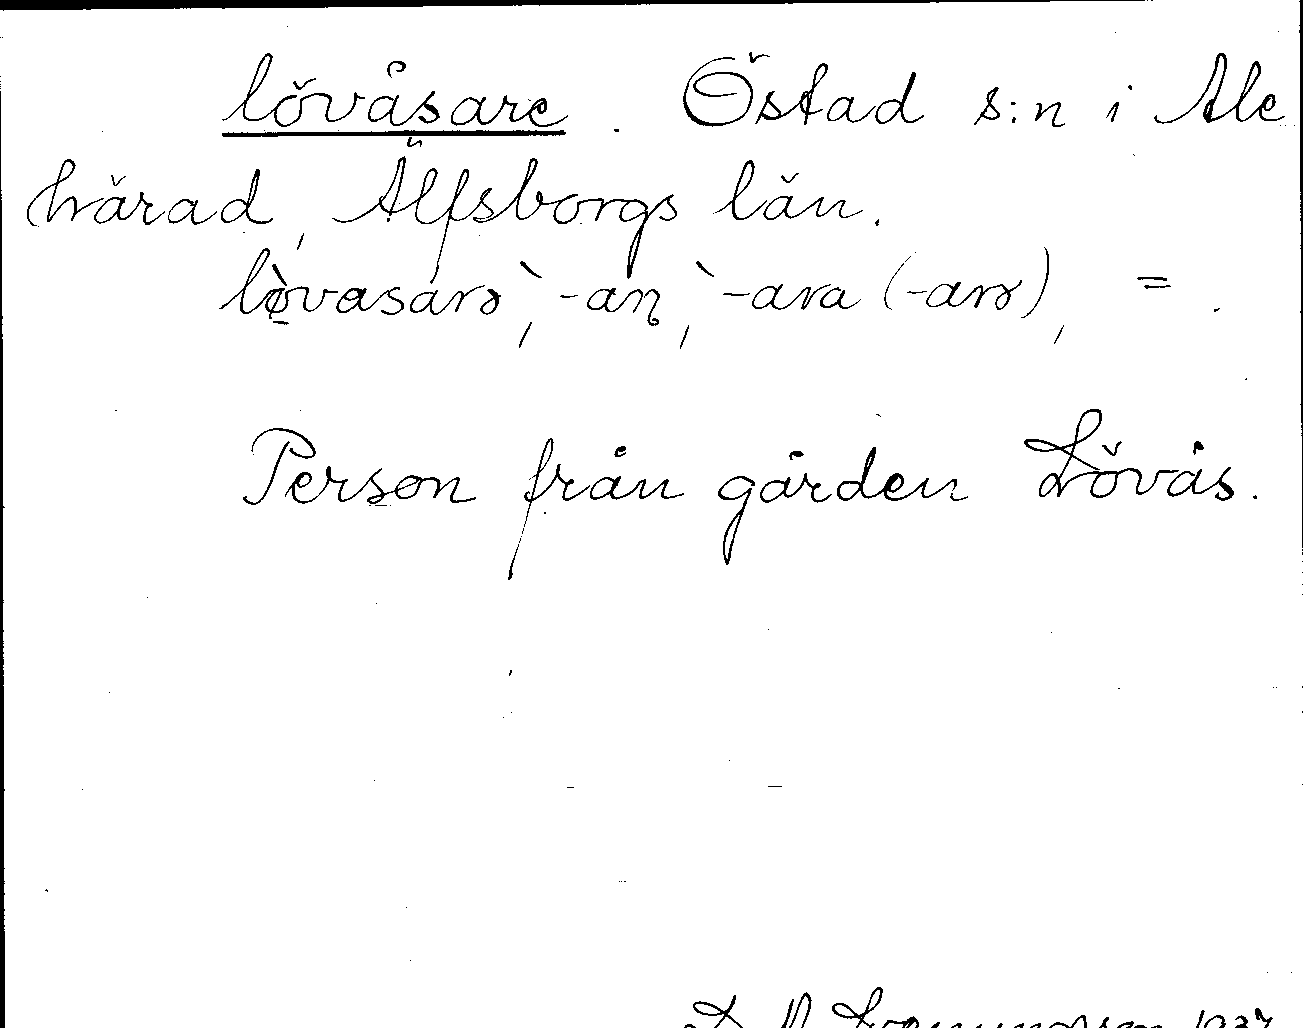 lövåsare. Östad s:n i Ale
härad, Älfsborgs län.
lø̀vasarə, -an, -ara (-arə), =.
Person från gården Lövås.